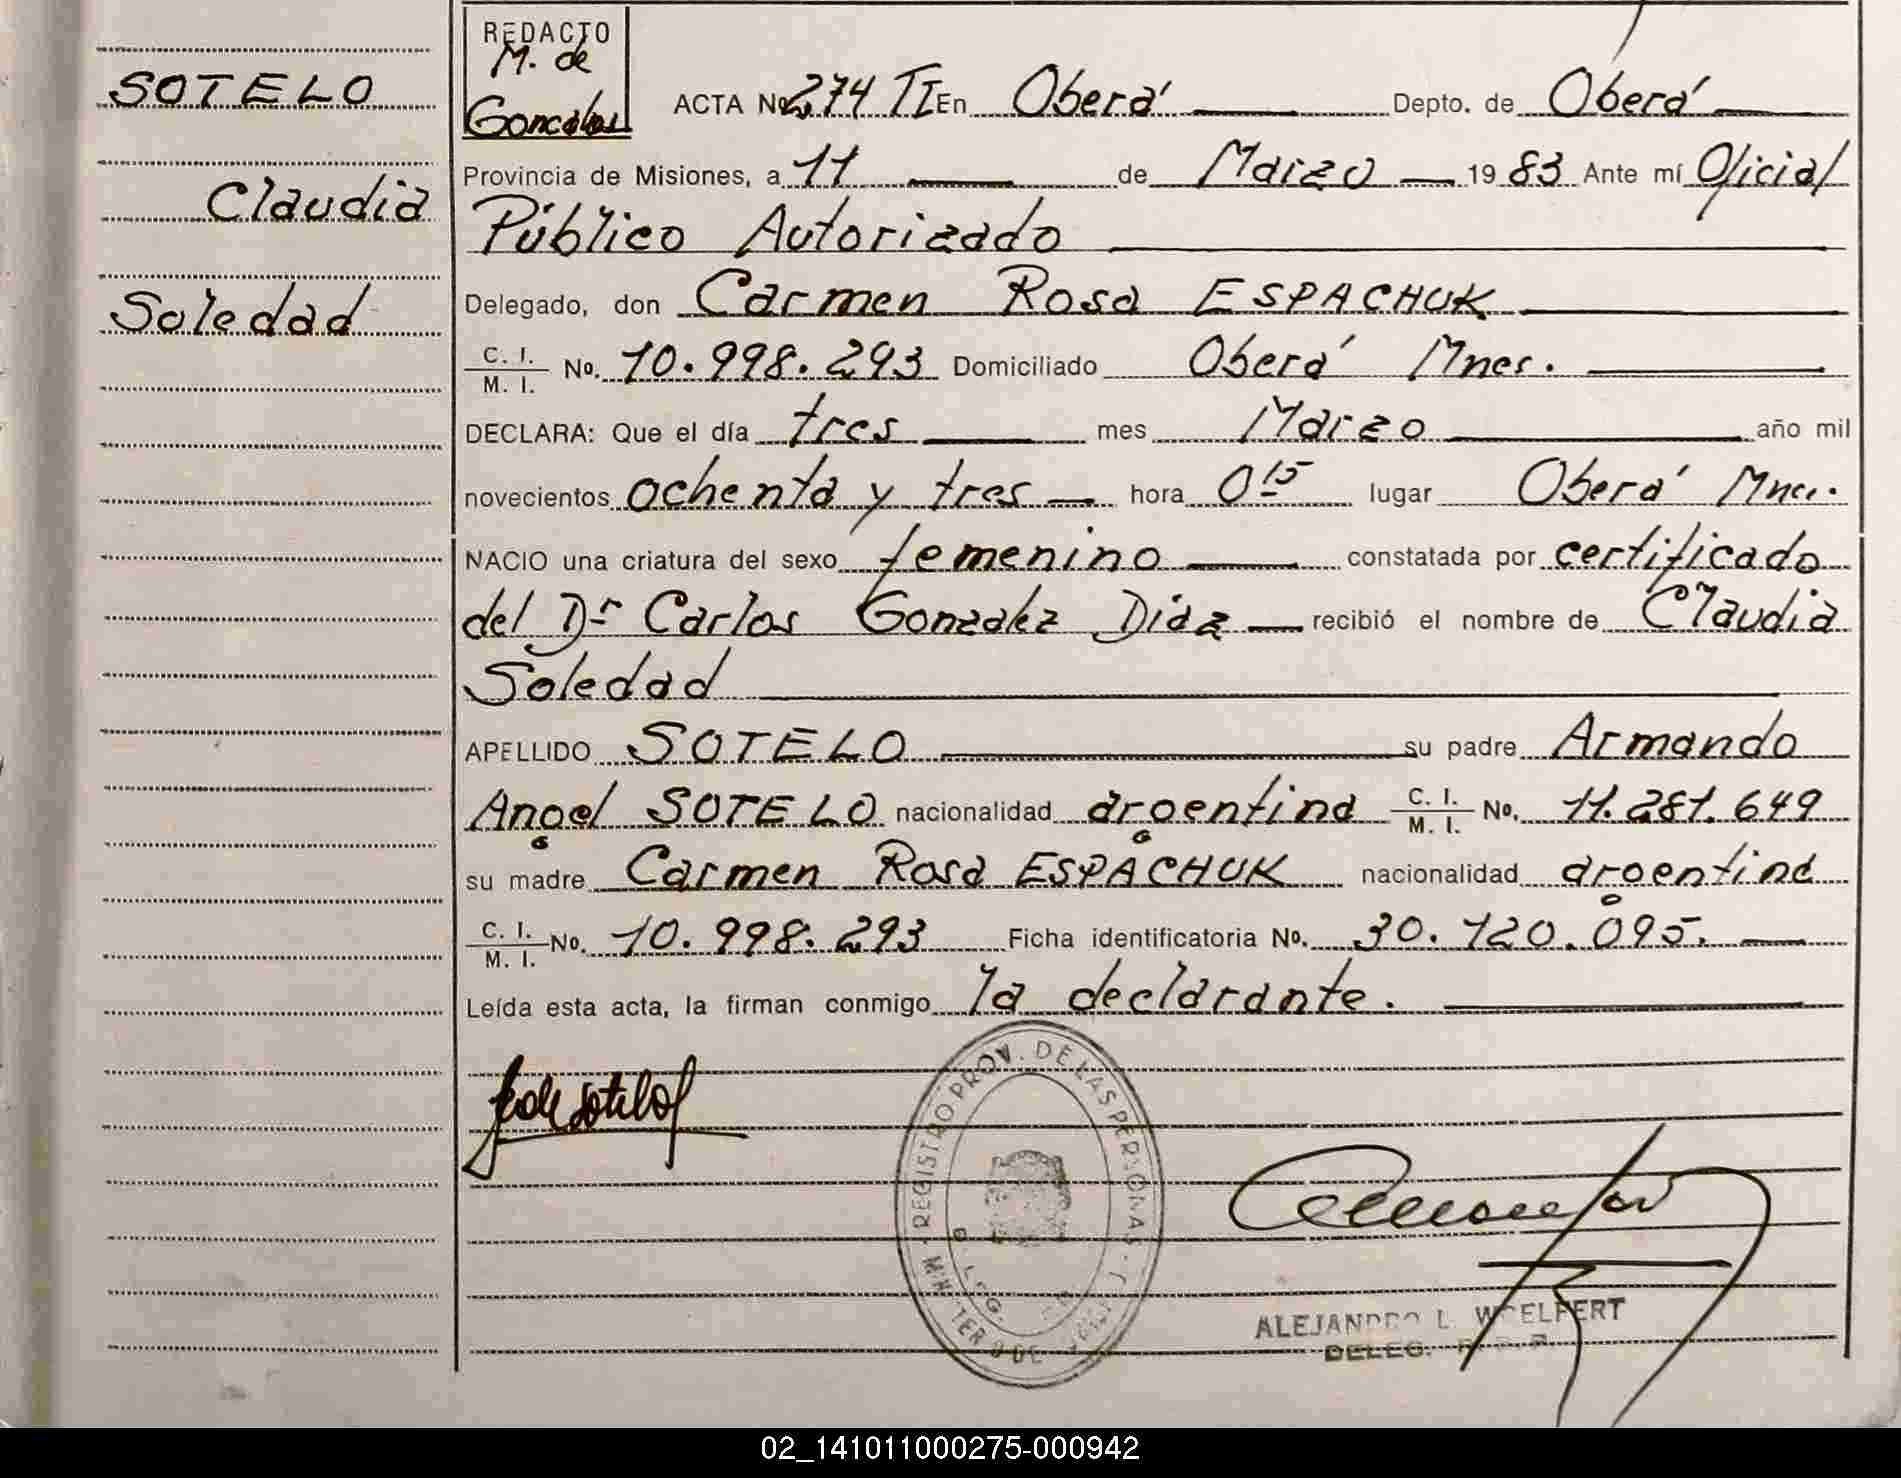 SOTELO
Claudia
Soledad
REDACTO
M. de
Goncalves
ACTA Nº 274 TI En Oberá Depto. de Oberá
Provincia de Misiones, a 11 de Marzo 1983 Ante mí Oficial
Público Autorizado
Delegado, don Carmen Rosa ESPACHUK
C. I. / M. I. No. 10.998.293 Domiciliado Oberá Mnes.
DECLARA: Que el día tres mes Marzo año mil
novecientos ochenta y tres hora 0 15 lugar Oberá Mnes.
NACIO una criatura del sexo femenino constatada por certificado
del Dr Carlos Gonzalez Diaz recibió el nombre de Claudia
Soledad
APELLIDO SOTELO su padre Armando
Angel SOTELO nacionalidad argentina C. I. / M. I. No. 11.281.649
su madre Carmen Rosa ESPACHUK nacionalidad argentina
C. I. / M. I. No. 10.998.293 Ficha identificatoria No. 30.120.095.
Leída esta acta, la firman conmigo la declarante.
REGISTRO PROV. DE LAS PERSONAS
ALEJANDRO L. WOELFERT
DELEG.
02_141011000275-000942